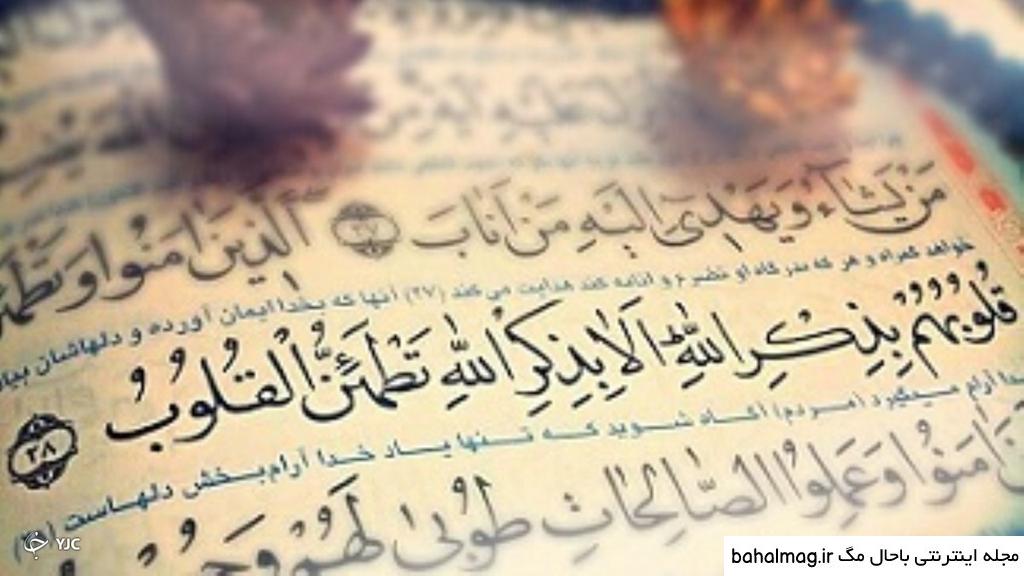 مَنْ يَشَآءُ وَيَهْدِىٓ اِلَيْهِ مَنْ اَنَابَ ٢٧ اَلَّذِينَ امَنُوا وَتَطْمَئِنُّ
خواهد گمراه و هر که بدرگاه او تضرع و انابه کند هدایت می کند (۲۷) آنها که بخدا ایمان آورده و دلهاشان بیاد
قُلُوبُهُمْ بِذِكْرِ اللّٰهِ اَلَا بِذِكْرِ اللّٰهِ تَطْمَئِنُّ الْقُلُوبُ ٢٨
خدا آرام میگیرد (مردم) آگاه شوید که تنها یاد خدا آرام‌بخش دلهاست
امَنُوا وَعَمِلُوا الصَّالِحَاتِ طُوبىٰ لَهُمْ وَحُ
YJC
مجله اینترنتی باحال مگ bahalmag.ir